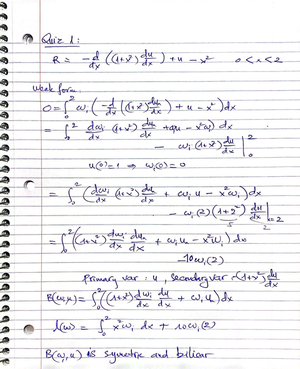 Quiz 1:
R = -d/dx ((1+x²) du/dx) + u - x²   0<x<2
weak form
0 = ∫₀² wᵢ (-d/dx ((1+x²) du/dx) + u - x²) dx
= ∫₀² (dwᵢ/dx (1+x²) du/dx + wᵢu - x²wᵢ) dx
- wᵢ (1+x²) du/dx |₀²
u(0)=1 ⇒ wᵢ(0)=0
= ∫₀² (dwᵢ/dx (1+x²) du/dx + wᵢ u - x²wᵢ) dx
- wᵢ(2) (1+2²) du/dx |x=2
5 2
= ∫₀² ((1+x²) dwᵢ/dx du/dx + wᵢ u - x²wᵢ) dx
-10wᵢ(2)
Primary var: u, secondary var (1+x²) du/dx
B(wᵢ,u) = ∫₀² ((1+x²) dwᵢ/dx du/dx + wᵢ u) dx
l(wᵢ) = ∫₀² x²wᵢ dx + 10wᵢ(2)
B(wᵢ,u) is symetric and biliear